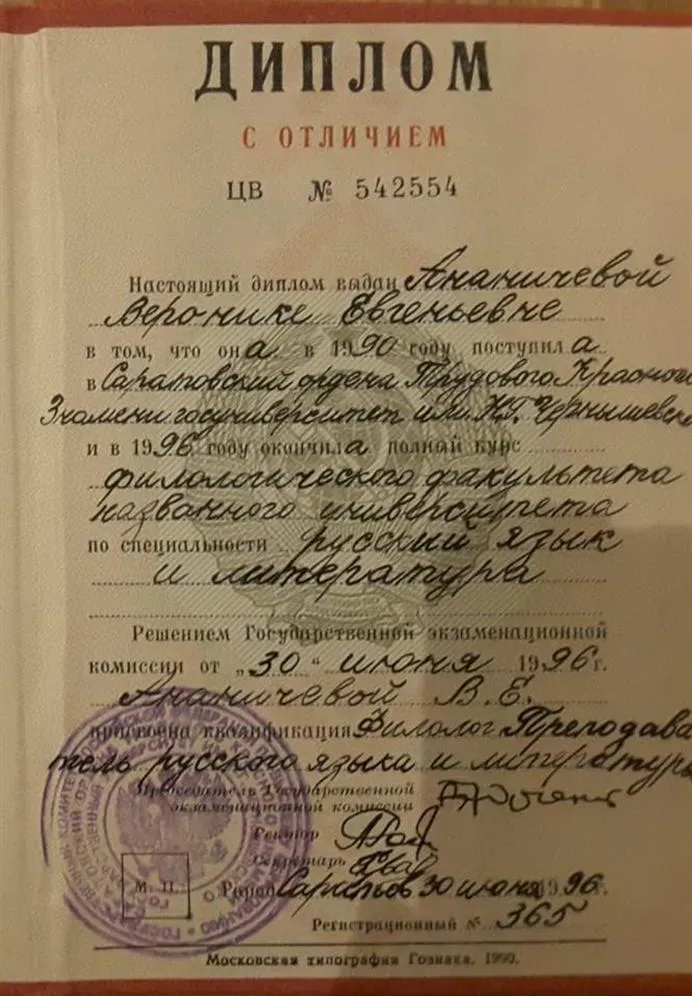 ДИПЛОМ
С ОТЛИЧИЕМ
ЦВ № 542554
Настоящий диплом выдан Ананичевой
Веронике Евгеньевне
в том, что она в 1990 году поступила
в Саратовский ордена Трудового Красного
Знамени госуниверситет им. Н.Г. Чернышевско
и в 1996 году окончила полный курс
филологического факультета
названного университета
по специальности русский язык
и литература
Решением Государственной экзаменационной
комиссии от „30“ июня 1996 г.
Ананичевой В. Е.
присвоена квалификация Филолог Преподава
тель русского языка и литературы
Председатель Государственной
экзаменационной комиссии
Ректор
Секретарь
М. П.
Город Саратов 30 июня 1996.
Регистрационный № 365
Московская типография Гознака. 1990.